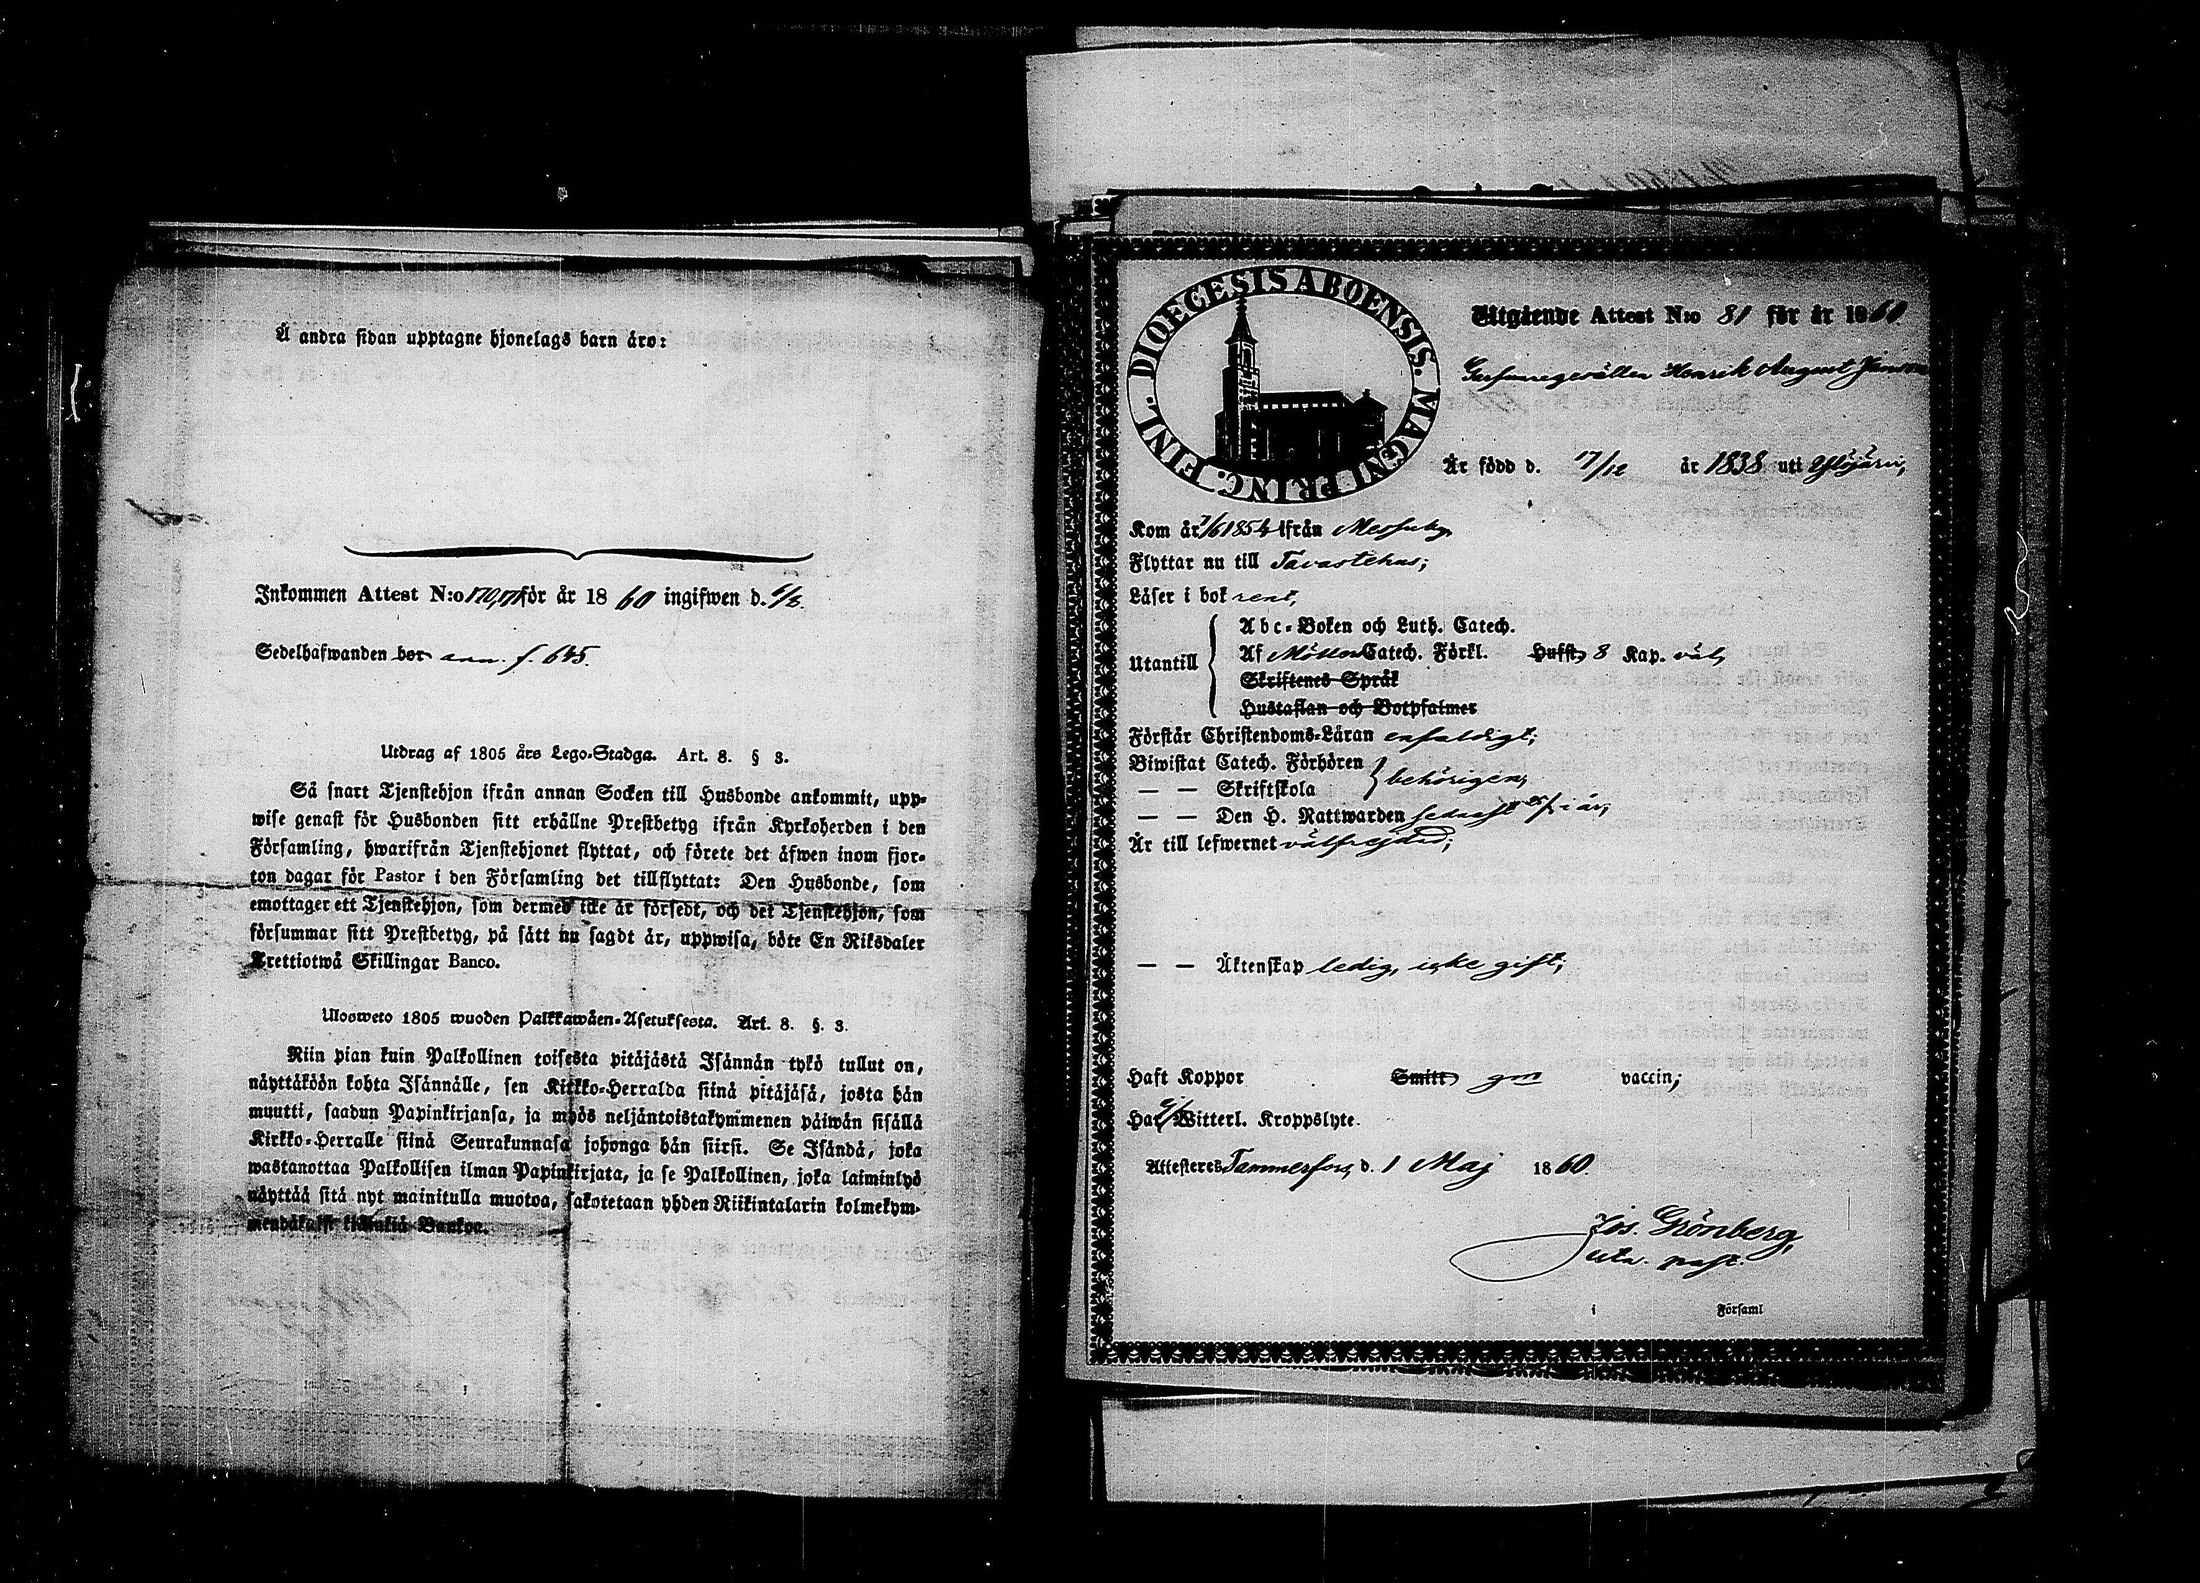 Å andra sidan upptagne hjonelags barn äro:
Inkommen Attest N:o 170,171 för år 1860 ingifwen d. 6/8.
Sedelhafwanden bor ann. f. 645.
Utdrag af 1805 års Lego-Stadga. Art. 8. § 3.
Så snart Tjenstehjon ifrån annan Socken till Husbonde ankommit, upp-
wise genast för Husbonden sitt erhållne Prestbetyg ifrån Kyrkoherden i den
Församling, hwarifrån Tjenstehjonet flyttat, och förete det äfwen inom fjor-
ton dagar för Pastor i den Församling det tillflyttat: Den Husbonde, som
emottager ett Tjenstehjon, som dermed icke är försedt, och det Tjenstehjon, som
försummar sitt Prestbetyg, på sätt nu sagdt är, uppwisa, böte En Riksdaler
Trettiotwå Skillingar Banco.
Ulosweto 1805 wuoden Palkkawäen-Asetuksesta. Art. 8. §. 3.
Niin pian kuin Palkollinen toisesta pitäjästä Isännän tykö tullut on,
näyttäköön kohta Isännälle, sen Kirkko-Herralda siinä pitäjäsä, josta hän
muutti, saadun Papinkirjansa, ja myös neljäntoistakymmenen päiwän sisällä
Kirkko-Herralle siinä Seurakunnasa johonga hän siirsi. Se Isändä, joka
wastanottaa Palkollisen ilman Papinkirjata, ja se Palkollinen, joka laiminlyö
näyttää sitä nyt mainitulla muotoa, sakotetaan yhden Riikintalarin kolmekym-
mendäkaksi killinkiä Bankoa.
DIOECESIS ABOENSIS. MAGNI PRINC. FINL.
Utgående Attest N:o 81 för år 1860.
Henrik August
Är född d. 17/12 år 1838 uti Ylöjärvi,
Kom år 7/6 1854 ifrån Messuby
Flyttar nu till Tavastehus;
Läser i bok rent,
Utantill
Abc-Boken och Luth. Catech.
Af Möllers Catech. Förkl. Hufst. 8 Kap. väl,
Skriftenes Språk
Hustaflan och Botpsalmer
Förstår Christendoms-Läran enfaldigt;
Biwistat Catech. Förhören
behörigen,
— — Skriftskola
— — Den H. Nattwarden senast i år,
Är till lefwernet välfrejdad;
— — Äktenskap ledig, icke gift;
Haft Koppor Smitt gm vaccin;
Har Witterl. Kroppslyte.
Attesteres Tammerfors, d. 1 Maj 1860
Jos. Grönberg,
past.
i Församl